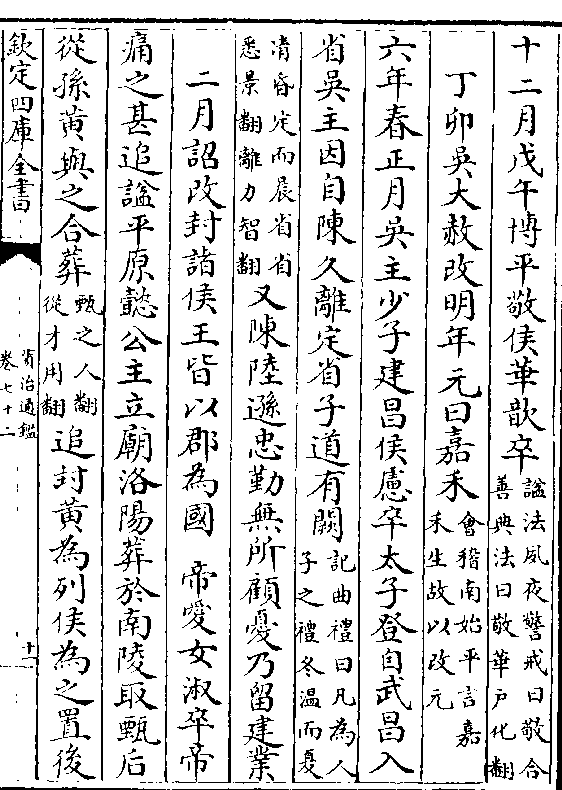 十二月戊午博平敬侯華歆卒諡法夙夜警戒曰敬合善典法曰敬華戸化翻
丁卯吳大赦改明年元曰嘉禾會稽南始平言嘉禾生故以改元
六年春正月吳主少子建昌侯慮卒太子登自武昌入
省吳主因自陳久離定省子道有闕記曲禮曰凡為人子之禮冬温而夏
清昏定而晨省省悉景翻離力智翻又陳陸遜忠勤無所顧憂乃留建業
二月詔改封諸侯王皆以郡為國 帝愛女淑卒帝
痛之甚追諡平原懿公主立廟洛陽葬於南陵取甄后
從孫黃與之合葬甄之人翻從才用翻追封黃為列侯為之置後
欽定四庫全書
資治通鑑
卷七十二
十一